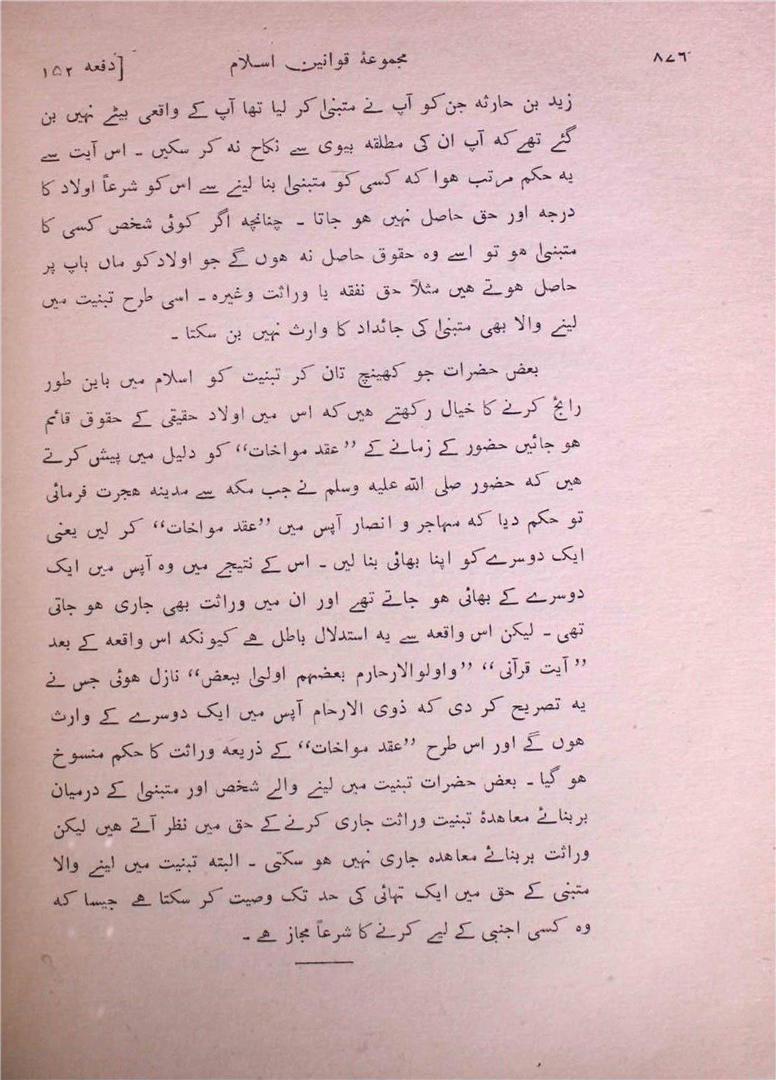 ۸۷٦ مجموعۂ قوانین اسلام [دفعہ ۱۵۲
زید بن حارثہ جن کو آپ نے متبنیٰ کر لیا تھا آپ کے واقعی بیٹے نہیں بن
گئے تھے کہ آپ ان کی مطلقہ بیوی سے نکاح نہ کر سکیں ۔ اس آیت سے
یہ حکم مرتب ہوا کہ کسی کو متبنیٰ بنا لینے سے اس کو شرعاً اولاد کا
درجہ اور حق حاصل نہیں ہو جاتا ۔ چنانچہ اگر کوئی شخص کسی کا
متبنیٰ ہو تو اسے وہ حقوق حاصل نہ ہوں گے جو اولاد کو ماں باپ پر
حاصل ہوتے ہیں مثلاً حق نفقہ یا وراثت وغیرہ ۔ اسی طرح تبنیت میں
لینے والا بھی متبنیٰ کی جائداد کا وارث نہیں بن سکتا ۔
بعض حضرات جو کھینچ تان کر تبنیت کو اسلام میں باین طور
رائج کرنے کا خیال رکھتے ہیں کہ اس میں اولاد حقیقی کے حقوق قائم
ہو جائیں حضور کے زمانے کے ’’عقد مواخات‘‘ کو دلیل میں پیش کرتے
ہیں کہ حضور صلی اللہ علیہ وسلم نے جب مکہ سے مدینہ ہجرت فرمائی
تو حکم دیا کہ مہاجر و انصار آپس میں ’’عقد مواخات‘‘ کر لیں یعنی
ایک دوسرے کو اپنا بھائی بنا لیں ۔ اس کے نتیجے میں وہ آپس میں ایک
دوسرے کے بھائی ہو جاتے تھے اور ان میں وراثت بھی جاری ہو جاتی
تھی ۔ لیکن اس واقعہ سے یہ استدلال باطل ہے کیونکہ اس واقعہ کے بعد
’’آیت قرآنی‘‘ ’’واولوالارحارم بعضہم اولیٰ ببعض‘‘ نازل ہوئی جس نے
یہ تصریح کر دی کہ ذوی الارحام آپس میں ایک دوسرے کے وارث
ہوں گے اور اس طرح ’’عقد مواخات‘‘ کے ذریعہ وراثت کا حکم منسوخ
ہو گیا ۔ بعض حضرات تبنیت میں لینے والے شخص اور متبنیٰ کے درمیان
بربنائے معاہدۂ تبنیت وراثت جاری کرنے کے حق میں نظر آتے ہیں لیکن
وراثت بربنائے معاہدہ جاری نہیں ہو سکتی ۔ البتہ تبنیت میں لینے والا
متبنی کے حق میں ایک تہائی کی حد تک وصیت کر سکتا ہے جیسا کہ
وہ کسی اجنبی کے لیے کرنے کا شرعاً مجاز ہے ۔